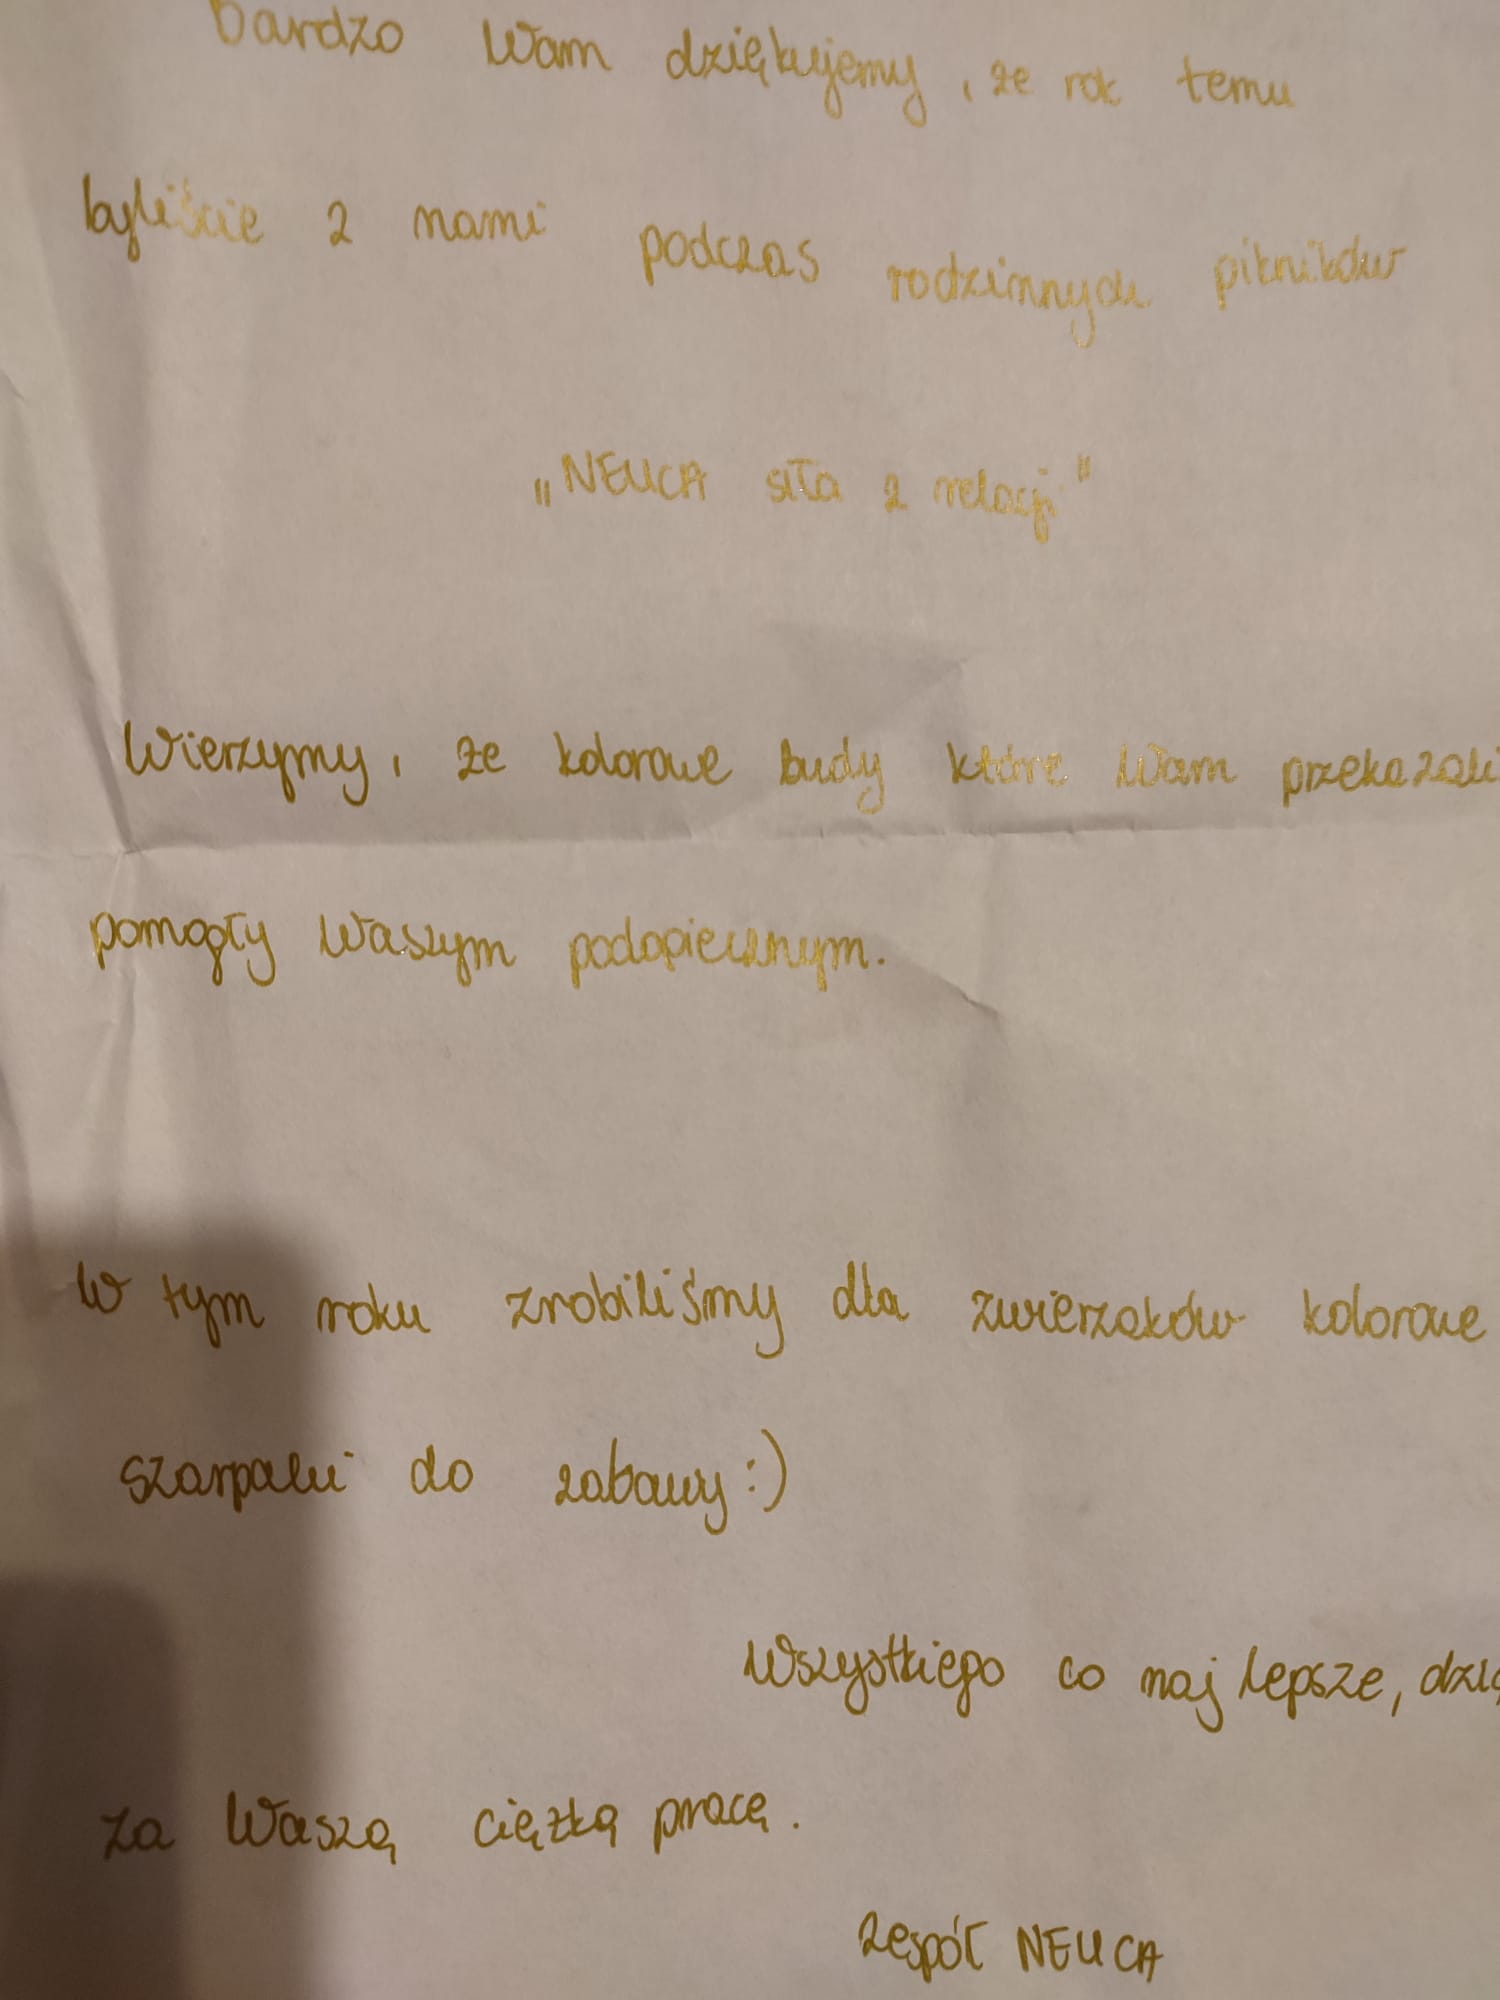 Bardzo Wam dziękujemy, że rok temu
byliście z nami podczas rodzinnych pikników
„NEUCA siła z relacji"
Wierzymy, że kolorowe budy które Wam przekazali
pomogły Waszym podopiecznym.
W tym roku zrobiliśmy dla zwierzaków kolorowe
szarpaki do zabawy :)
Wszystkiego co najlepsze, dzię
za Waszą ciężką pracę.
Zespół NEUCA